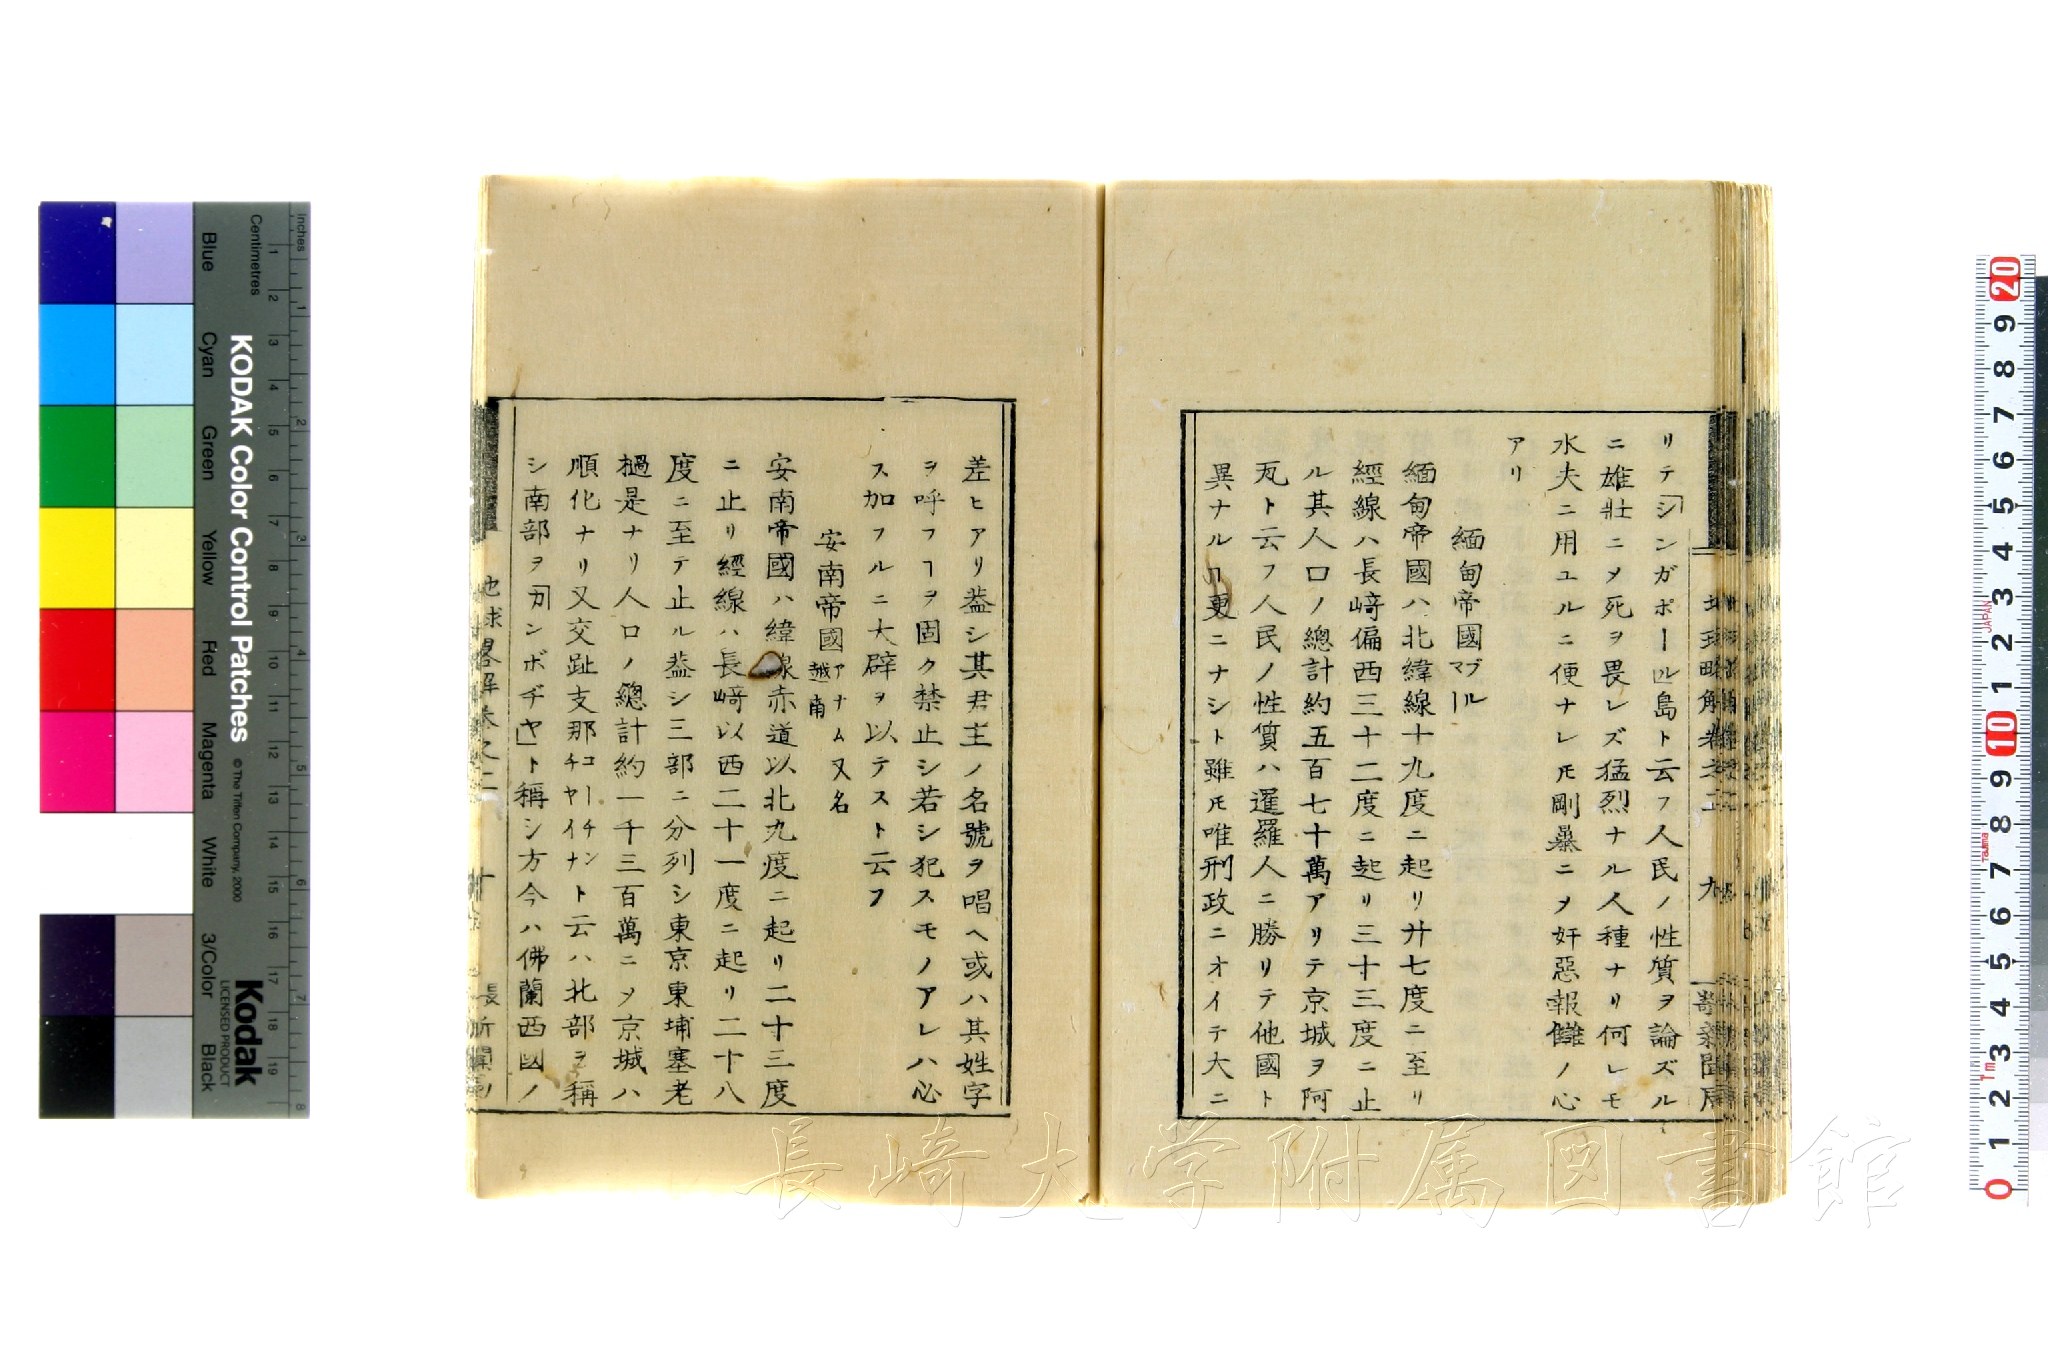 リテ「シンガポール」島ト云フ人民ノ性質ヲ論ズル
ニ雄壯ニヲ死ヲ畏レズ猛烈ナル人種ナリ何レモ
水夫ニ用ユルニ便ナレ𪜈剛暴ニヲ奸惡報讎ノ心
アリ
緬甸帝國ブルマー
緬甸帝國ハ北緯線十九度ニ起リ廾七度ニ至リ
經線ハ長﨑偏西三十二度ニ起リ三十三度ニ止
ル其人口ノ總計約五百七十萬アリテ京城ヲ阿
瓦ト云フ人民ノ性質ハ暹羅人ニ勝リテ他國ト
異ナルヿ更ニナシト雖𪜈唯刑政ニオイテ大ニ
差ヒアリ蓋シ其君主ノ名號ヲ唱ヘ或ハ其姓字
ヲ呼フヿヲ固ク禁止シ若シ犯スモノアレハ必
ス加フルニ大辟ヲ以テスト云フ
安南帝國アナム又名越南
安南帝國ハ緯線赤道以北九度ニ起リ二十三度
ニ止リ經線ハ長﨑以西二十一度ニ起リ二十八
度ニ至テ止ル蓋シ三部ニ分列シ東京東埔塞老
檛是ナリ人口ノ總計約一千三百萬ニヲ京城ハ
順化ナリ又交趾支那コーチンチヤイナト云ハ北部ヲ稱
シ南部ヲ「カンボヂヤ」ト稱シ方今ハ佛蘭西國ノ
地球畧解卷之二 十
長﨑大学附属図書館
KODAK Color Control Patches
© The Tiffen Company, 2000
Kodak
LICENSED PRODUCT
Inches
Centimetres
Blue
Cyan
Green
Yellow
Red
Magenta
White
3/Color
Black
1 2 3 4 5 6 7 8 9 10 11 12 13 14 15 16 17 18 19
1 2 3 4 5 6 7 8
20 9 8 7 6 5 4 3 2 1 10 9 8 7 6 5 4 3 2 1 0
JAPAN
Tajima